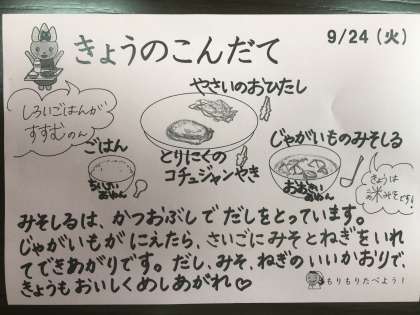 きょうのこんだて
9/24（火）
やさいのおひたし
しろいごはんが
すすむのん
ごはん
ちいさい
おわん
とりにくの
コチュジャンやき
じゃがいものみそしる
おおきい
おわん
きょうは
米みそです!
みそしるは、かつおぶしでだしをとっています。
じゃがいもがにえたら、さいごにみそとねぎをいれ
てできあがりです。だし、みそ、ねぎのいいかおりで、
きょうもおいしくめしあがれ♡
もりもりたべよう!